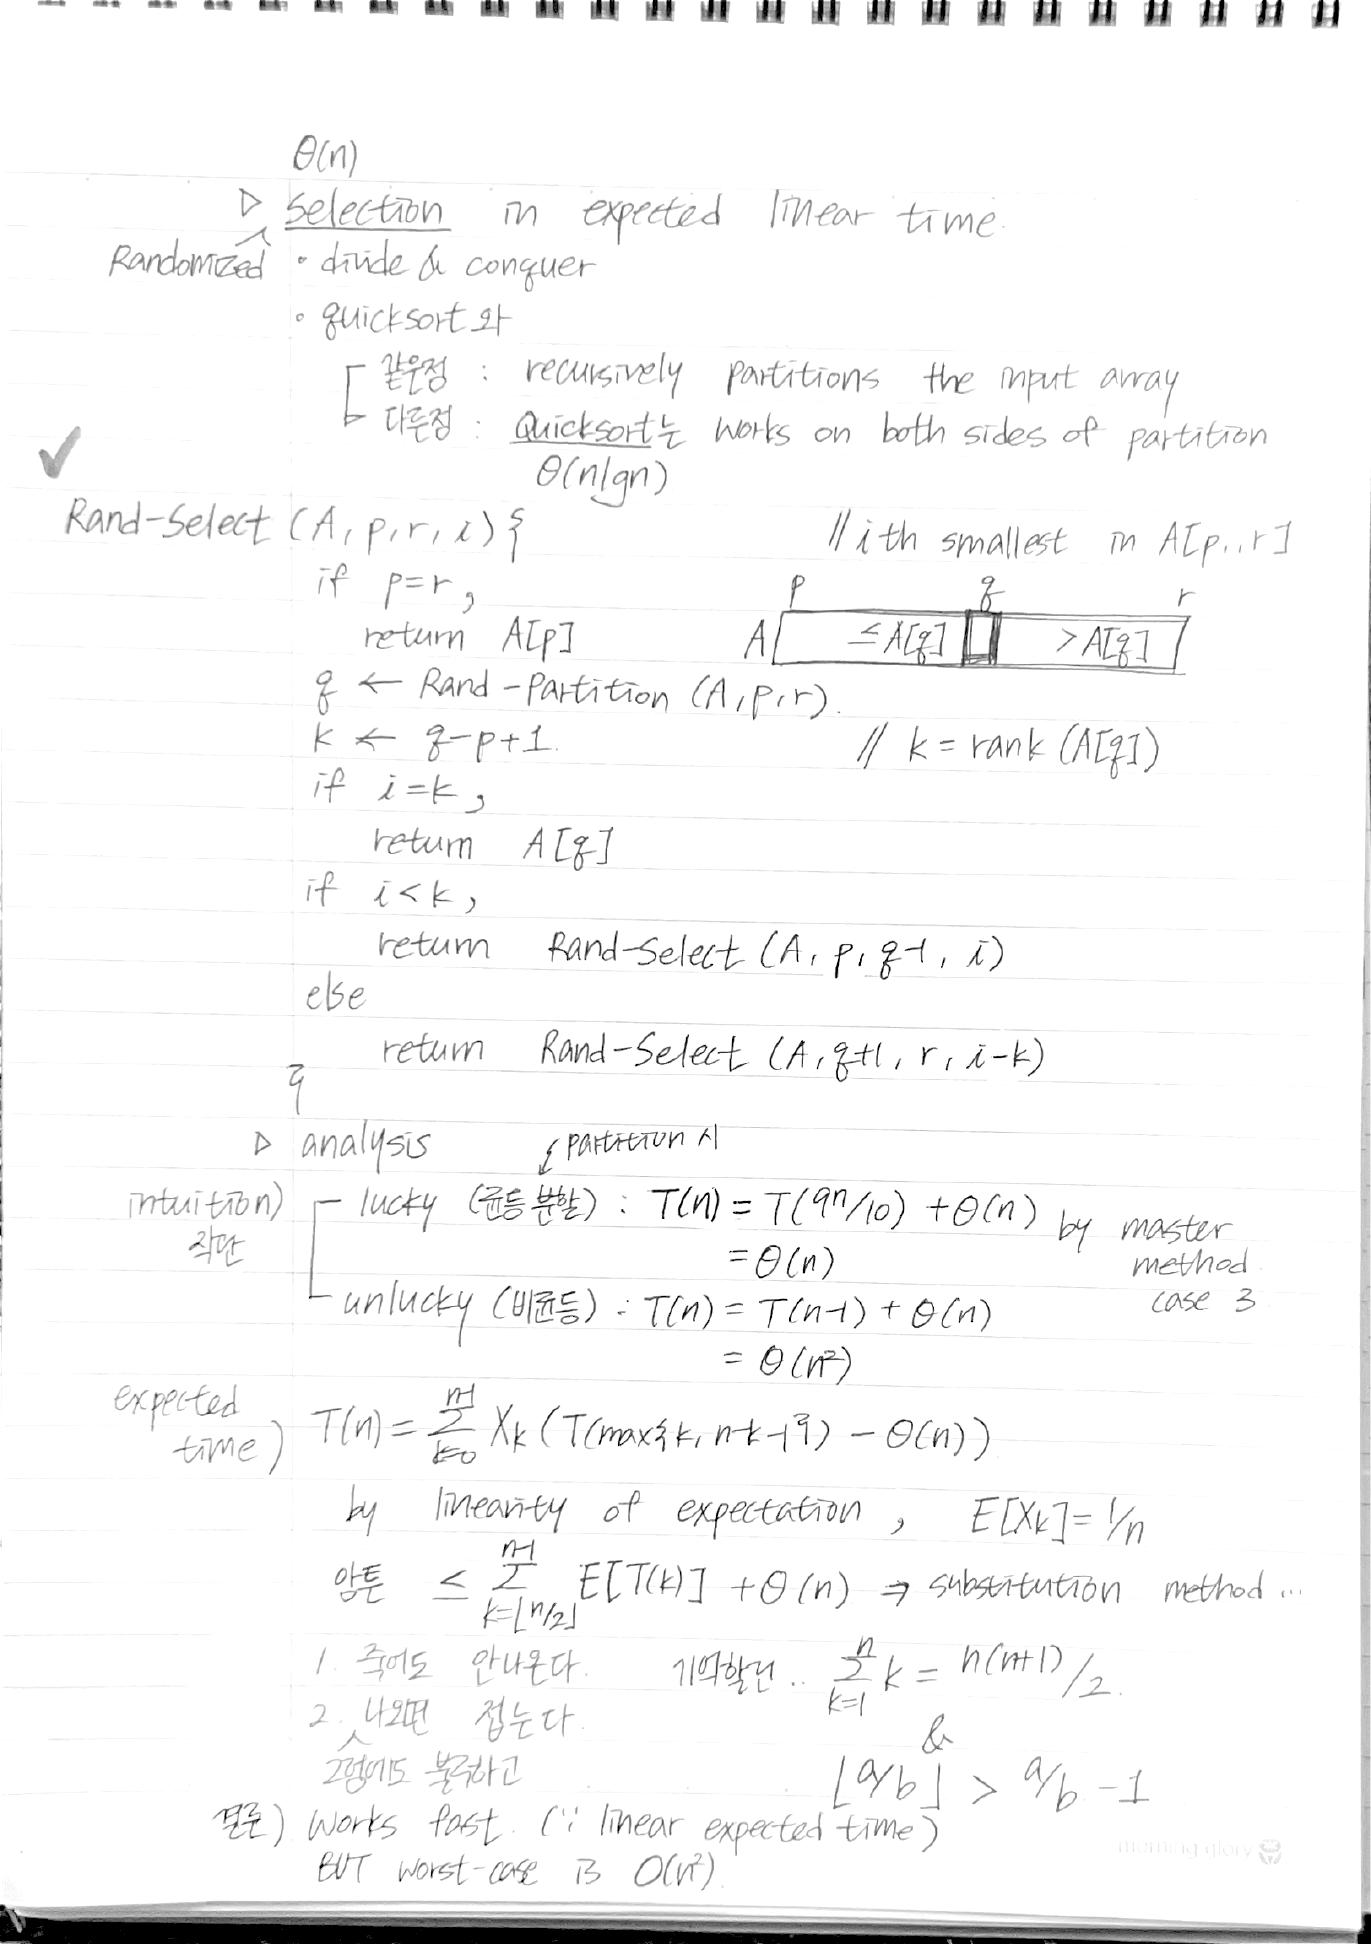 Θ(n)
▷ Selection in expected linear time.
Randomized • divide & conquer
• quicksort와
같은점 : recursively partitions the input array
다른점 : Quicksort는 works on both sides of partition
Θ(nlgn)
✓
Rand-Select (A, p, r, i) { // ith smallest in A[p..r]
if p=r, p q r
return A[p] A ≤A[q] >A[q]
q ← Rand-Partition (A, p, r).
k ← q-p+1. // k = rank (A[q])
if i=k,
return A[q]
if i<k,
return Rand-Select (A, p, q-1, i)
else
return Rand-Select (A, q+1, r, i-k)
}
▷ analysis ↙ partition 시
intuition) lucky (균등 분할) : T(n) = T(9n/10) + Θ(n) by master
직관 = Θ(n) method
unlucky (비균등) : T(n) = T(n-1) + Θ(n) case 3
= Θ(n²)
expected T(n) = Σ_{k=0}^{n-1} Xk (T(max{k, n-k-1}) - Θ(n))
time)
by linearity of expectation, E[Xk] = 1/n
암튼 ≤ Σ_{k=⌊n/2⌋}^{n-1} E[T(k)] + Θ(n) ⇒ substitution method...
1. 죽어도 안나온다. 기억할건.. Σ_{k=1}^{n} k = n(n+1)/2.
2. 나오면 접는다. &
그럼에도 불구하고 ⌊a/b⌋ > a/b - 1
결론) Works fast. (∵ linear expected time)
BUT worst-case is O(n²).
morning glory